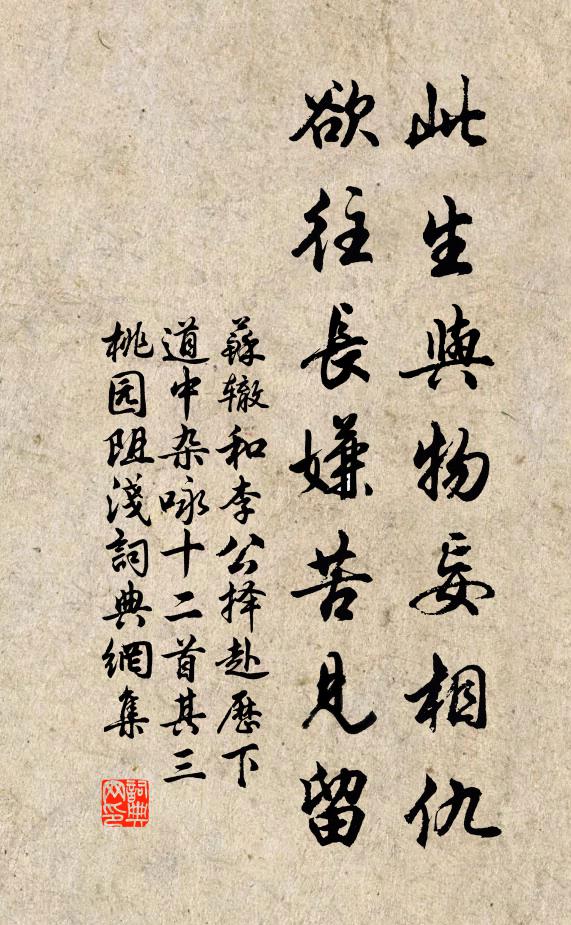 此生與物妄相仇
欲往長嫌苦見留
蘇辙和李公择赴歷下
道中杂咏十二首其三
桃园阻淺詞典網集
詞典
网印